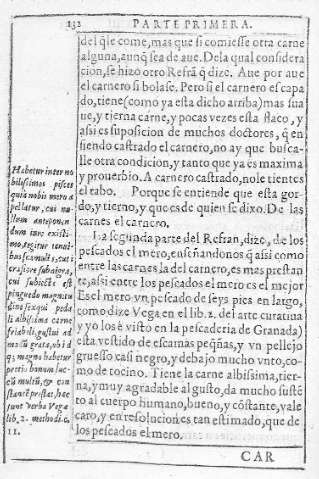 132 PARTE PRIMERA.
del q̃ le come, mas que si comiesse otra carne
alguna, aunq̃ sea de aue. De la qual considera
cion, se hizo otro Refrã q̃ dize. Aue por aue
el carnero si bolase. Pero si el carnero es capa
do, tiene (como ya esta dicho arriba) mas sua
ue, y tierna carne, y pocas vezes esta flaco, y
assi es suposicion de muchos doctores, q̃ en
siendo castrado el carnero, no ay que busca-
lle otra condicion, y tanto que ya es maxima
y prouerbio. A carnero castrado, no le tientes
el rabo. Porque se entiende que esta gor-
do, y tierno, y que es de quien se dixo. De las
carnes el carnero.
La segunda parte del Refran, dize, de los
pescados el mero, enseñandonos q̃ assi como
entre las carnes la del carnero, es mas prestan
te, assi entre los pescados el mero es el mejor
Es el mero vn pescado de seys pies en largo,
como dize Vega en el lib. 2. del arte curatiua
y yo los è visto en la pescaderia de Granada)
esta vestido de escamas peq̃ñas, y vn pellejo
gruesso casi negro, y debajo mucho vnto, co-
mo de tocino. Tiene la carne albissima, tier-
na, y muy agradable al gusto, da mucho sustẽ
to al cuerpo humano, bueno, y cõstante, vale
caro, y en resolucion es tan estimado, que de
los pescados el mero.
CAR
Habetur inter no
bilissimos pisces
qui nobis mero a
pellatur, cui nu
llum anteponen-
dum iure existi-
mo, tegitur tenui
bus squamulis, cuti
crasiore subnigra,
cui subiecta est
pinguedo magnitu
dine sex quî pedũ
li albissima carne
friabili, gustui ad
modũ grata, ob id
q; magno habetur
pretio bonum suc
cũ multũ, & con
stantẽ prestat, hæc
sunt verba Vega
lib. 2. methodi. c.
11.